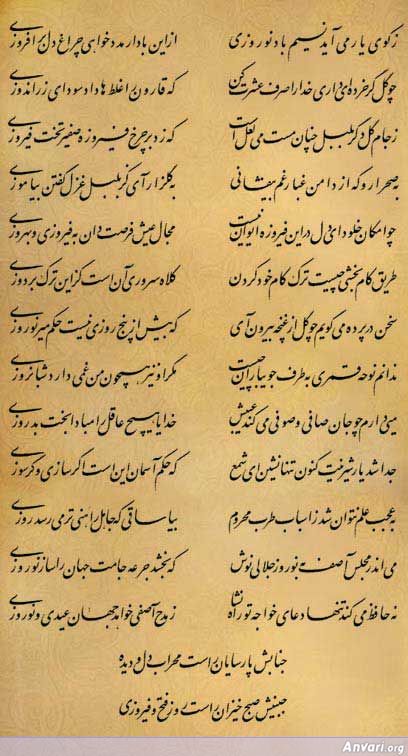 ز کوی یار می آید نسیم باد نوروزی از این باد ار مدد خواهی چراغ دل برافروزی
چو گل گر خرده‌ای داری خدا را صرف عشرت کن که قارون را غلط‌ها داد سودای زراندوزی
ز جام گل دگر بلبل چنان مست می لعل است که زد بر چرخ فیروزه صفیر تخت فیروزی
به صحرا رو که از دامن غبار غم بیفشانی به گلزار آی کز بلبل غزل گفتن بیاموزی
چو امکان خلود ای دل در این فیروزه ایوان نیست مجال عیش فرصت دان به فیروزی و بهروزی
طریق کام بخشی چیست ترک کام خود کردن کلاه سروری آن است کز این ترک بردوزی
سخن در پرده می گویم چو گل از غنچه بیرون آی که بیش از پنج روزی نیست حکم میر نوروزی
ندانم نوحه قمری به طرف جویباران چیست مگر او نیز همچون من غمی دارد شبانروزی
میی دارم چو جان صافی و صوفی می کند عیبش خدایا هیچ عاقل را مبادا بخت بد روزی
جدا شد یار شیرینت کنون تنها نشین ای شمع که حکم آسمان این است اگر سازی و گر سوزی
به عجب علم نتوان شد ز اسباب طرب محروم بیا ساقی که جاهل را هنی تر می رسد روزی
می اندر مجلس آصف به نوروز جلالی نوش که بخشد جرعه جامت جهان را ساز نوروزی
نه حافظ می کند تنها دعای خواجه تورانشاه ز مدح آصفی خواهد جهان عیدی و نوروزی
جنابش پارسایان راست محراب دل و دیده
جبینش صبح خیزان راست روز فتح و فیروزی
Anvari.org